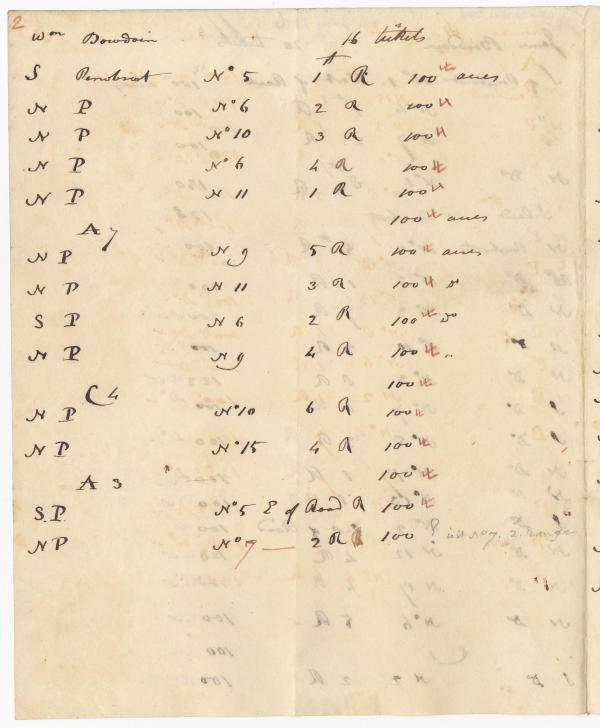 2
Wm Bowdoin 16 tickets
S Penobscot No 5 1st R 100 acres
N P No 6 2 R 100
N P No 10 3 R 100
N P No 6 4 R 100
N P N 11 1 R 100
A 7 100 acres
N P N 9 5 R 100 acres
N P N 11 3 R 100 Do
S P N 6 2 R 100 Do
N P N 9 4 R 100 "
C 4 100
N P No 10 6 R 100
N P No 15 4 R 100
A 3 100
S.P. No 5 E of Road R 100
N P No 7 — 2 R 100 ? is it No 7. 2. Range